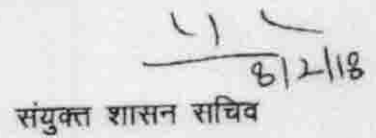 8/2/18
संयुक्त शासन सचिव